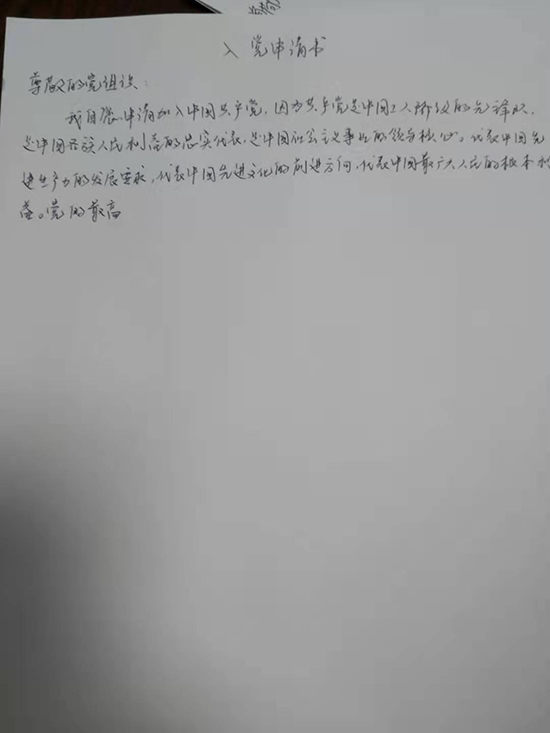 入党申请书
尊敬的党组织:
我自愿申请加入中国共产党,因为共产党是中国工人阶级的先锋队,
是中国各族人民利益的忠实代表,是中国社会主义事业的领导核心。代表中国先
进生产力的发展要求,代表中国先进文化的前进方向,代表中国最广大人民的根本利
益。党的最高